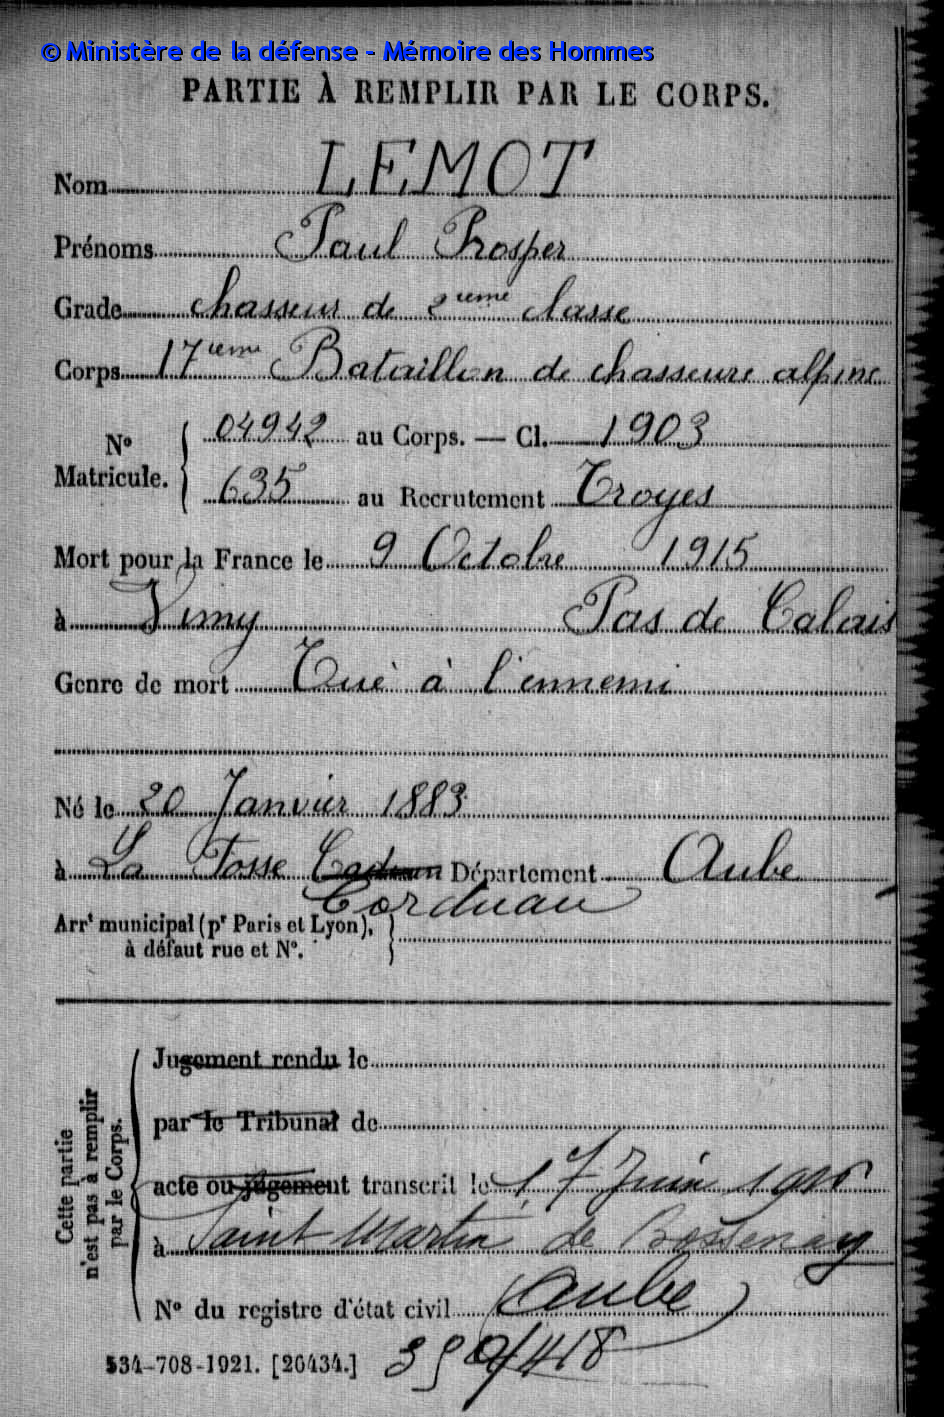 © Ministère de la défense - Mémoire des Hommes
PARTIE À REMPLIR PAR LE CORPS.
Nom LEMOT
Prénoms Paul Prosper
Grade chasseur de 2ième classe
Corps 17ième Bataillon de chasseurs alpins
N° Matricule. { 04942 au Corps. — Cl. 1903
635 au Recrutement Troyes
Mort pour la France le 9 Octobre 1915
à Vimy Pas de Calais
Genre de mort Tué à l'ennemi
Né le 20 Janvier 1883
à La Fosse Département Aube
Corduan
Arrt municipal (pr Paris et Lyon),
à défaut rue et N°.
Cette partie
n'est pas à remplir
par le Corps.
Jugement rendu le
par le Tribunal de
acte ou jugement transcrit le 17 Juin 1916
à Saint Martin de Bossenay
Aube
N° du registre d'état civil
534-708-1921. [26434.]